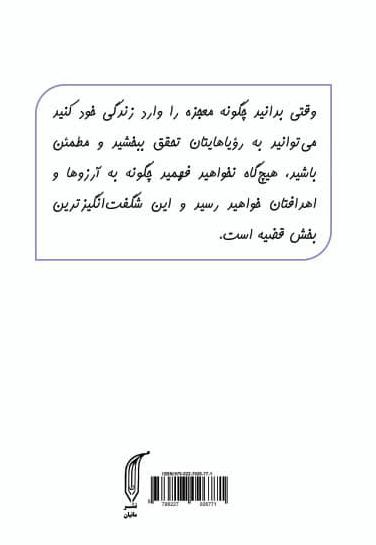 وقتی بدانید چگونه معجزه را وارد زندگی خود کنید
می‌توانید به رؤیاهایتان تحقق ببخشید و مطمئن
باشید، هیچ‌گاه نخواهید فهمید چگونه به آرزوها و
اهدافتان خواهید رسید و این شگفت‌انگیزترین
بخش قضیه است.
نشر
ماتیان